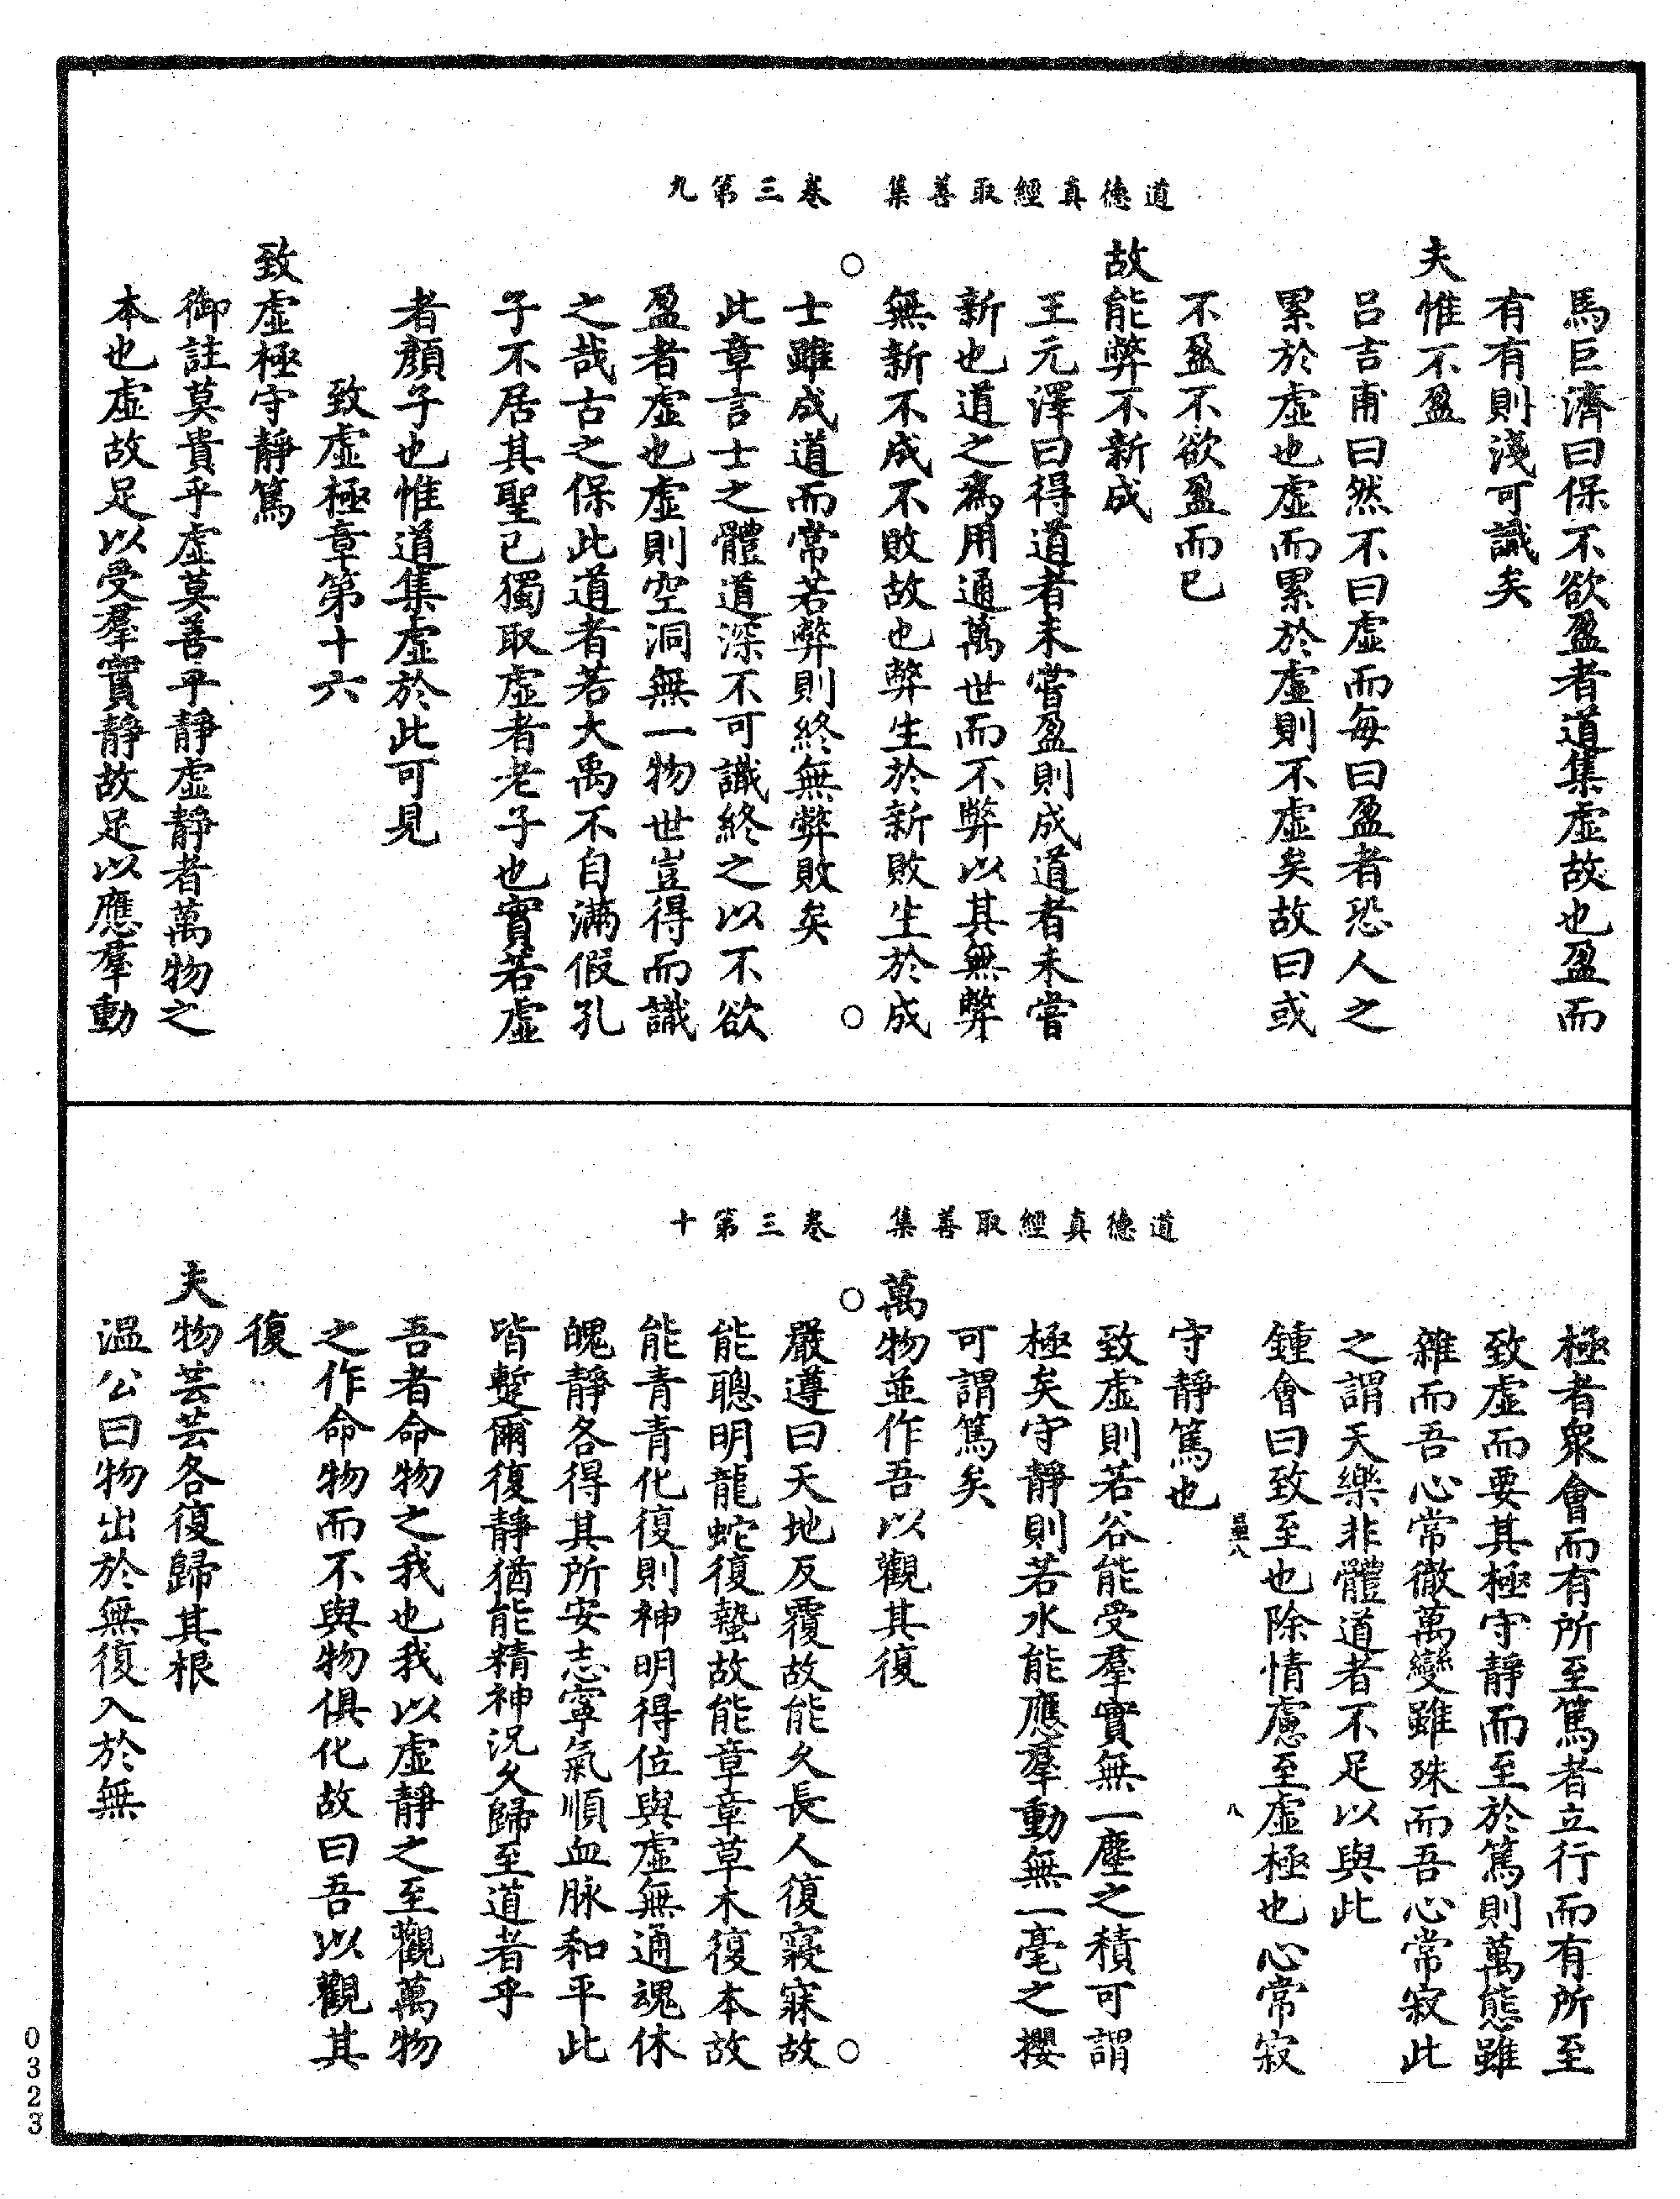 道德真經取善集　卷三第九
馬巨濟曰保不欲盈者道集虛故也盈而
有有則淺可識矣
夫惟不盈
呂吉甫曰然不曰虛而每曰盈者恐人之
累於虛也虛而累於虛則不虛矣故曰或
不盈不欲盈而已
故能弊不新成
王元澤曰得道者未嘗盈則成道者未嘗
新也道之為用通萬世而不弊以其無弊
無新不成不敗故也弊生於新敗生於成
○　○
士雖成道而常若弊則終無弊敗矣
此章言士之體道深不可識終之以不欲
盈者虛也虛則空洞無一物世豈得而識
之哉古之保此道者若大禹不自滿假孔
子不居其聖已獨取虛者老子也實若虛
者顏子也惟道集虛於此可見
致虛極章第十六
致虛極守靜篤
御註莫貴乎虛莫善乎靜虛靜者萬物之
本也虛故足以受羣實靜故足以應羣動
道德真經取善集　卷三第十
極者衆會而有所至篤者立行而有所至
致虛而要其極守靜而至於篤則萬態雖
雜而吾心常徹萬變雖殊而吾心常寂此
之謂天樂非體道者不足以與此
鍾會曰致至也除情慮至虛極也心常寂
八
守靜篤也
致虛則若谷能受羣實無一塵之積可謂
極矣守靜則若水能應羣動無一毫之攖
可謂篤矣
萬物並作吾以觀其復
○　○
嚴遵曰天地反覆故能久長人復寢寐故
能聰明龍蛇復蟄故能章章草木復本故
能青青化復則神明得位與虛無通魂休
魄靜各得其所安志寧氣順血脉和平此
皆蹔爾復靜猶能精神況久歸至道者乎
吾者命物之我也我以虛靜之至觀萬物
之作命物而不與物俱化故曰吾以觀其
復
夫物芸芸各復歸其根
溫公曰物出於無復入於無
0323